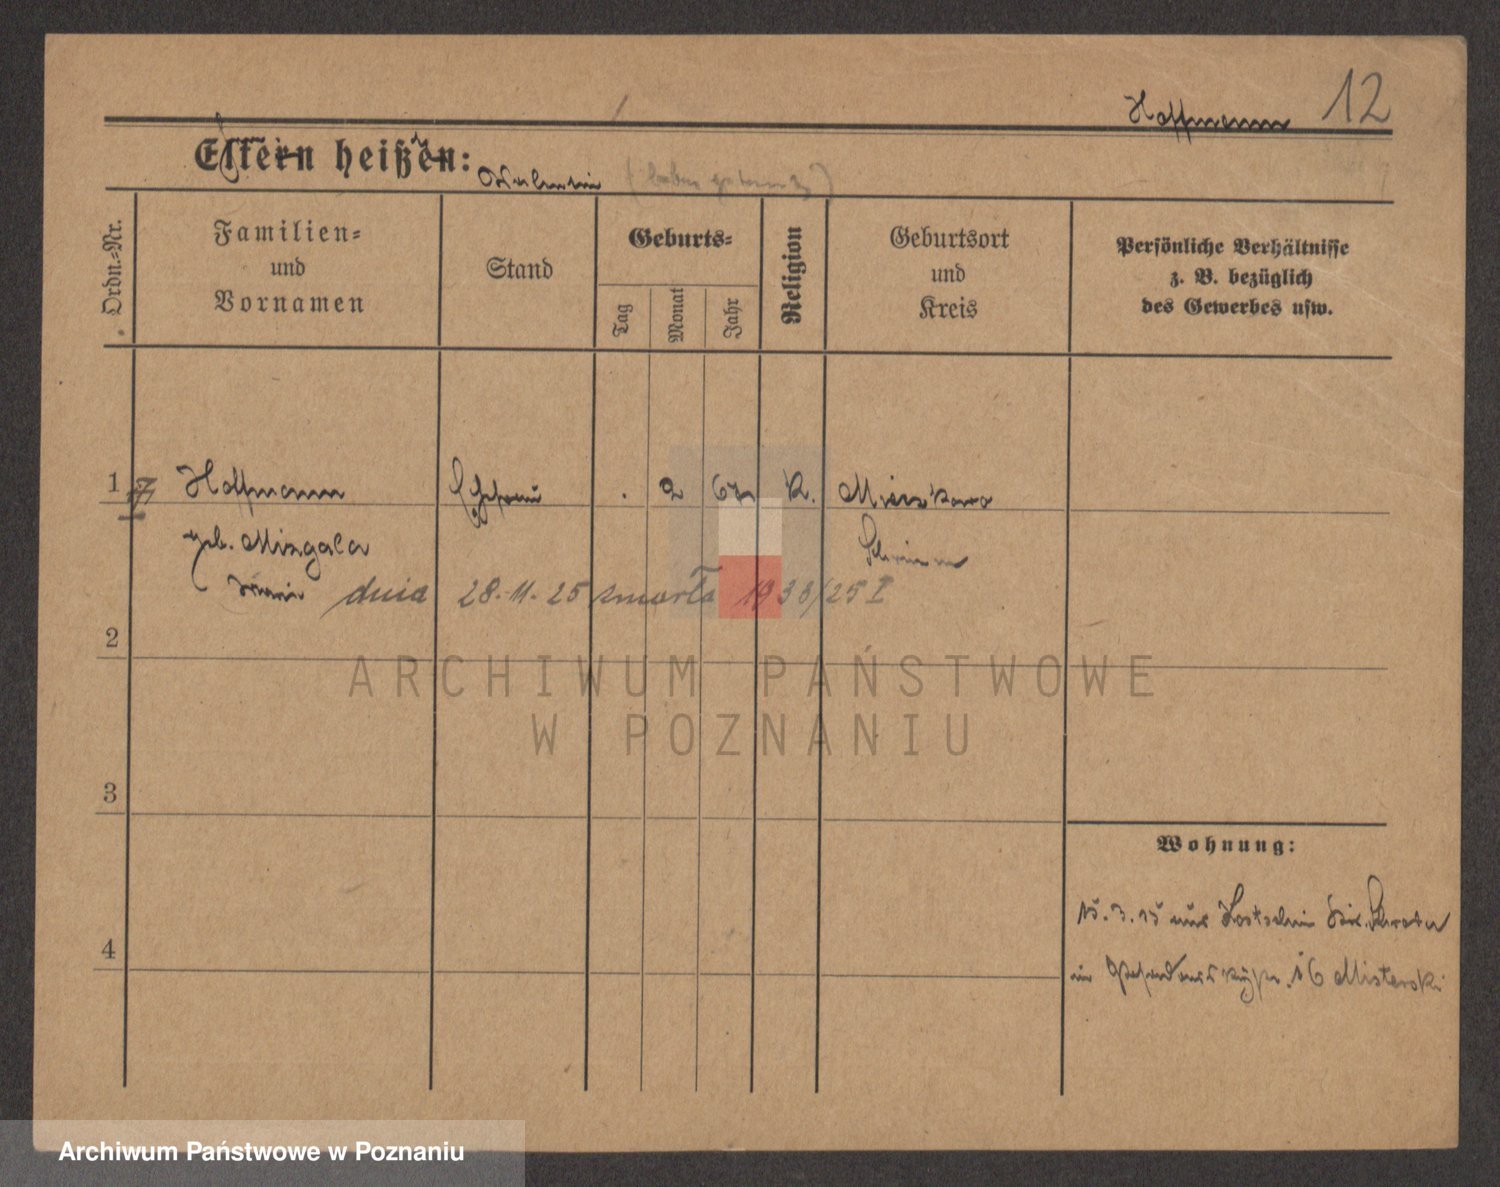 Hoffmann 12
Eltern heißen:
Ordn.-Nr.
Familien-
und
Vornamen
Stand
Geburts-
Tag
Monat
Jahr
Religion
Geburtsort
und
Kreis
Persönliche Verhältnisse
z. B. bezüglich
des Gewerbes usw.
1 Hoffmann Ehefrau . 2 K.
geb. Mizgala Schrimm
dnia 28.11.25 zmarła 1938/25 I
2
ARCHIWUM PAŃSTWOWE
W POZNANIU
3
Wohnung:
15.3.15 aus Kostschin
4
in 16 Misterski
Archiwum Państwowe w Poznaniu